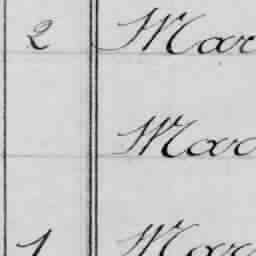 2 Mar
Mar
1 Mar